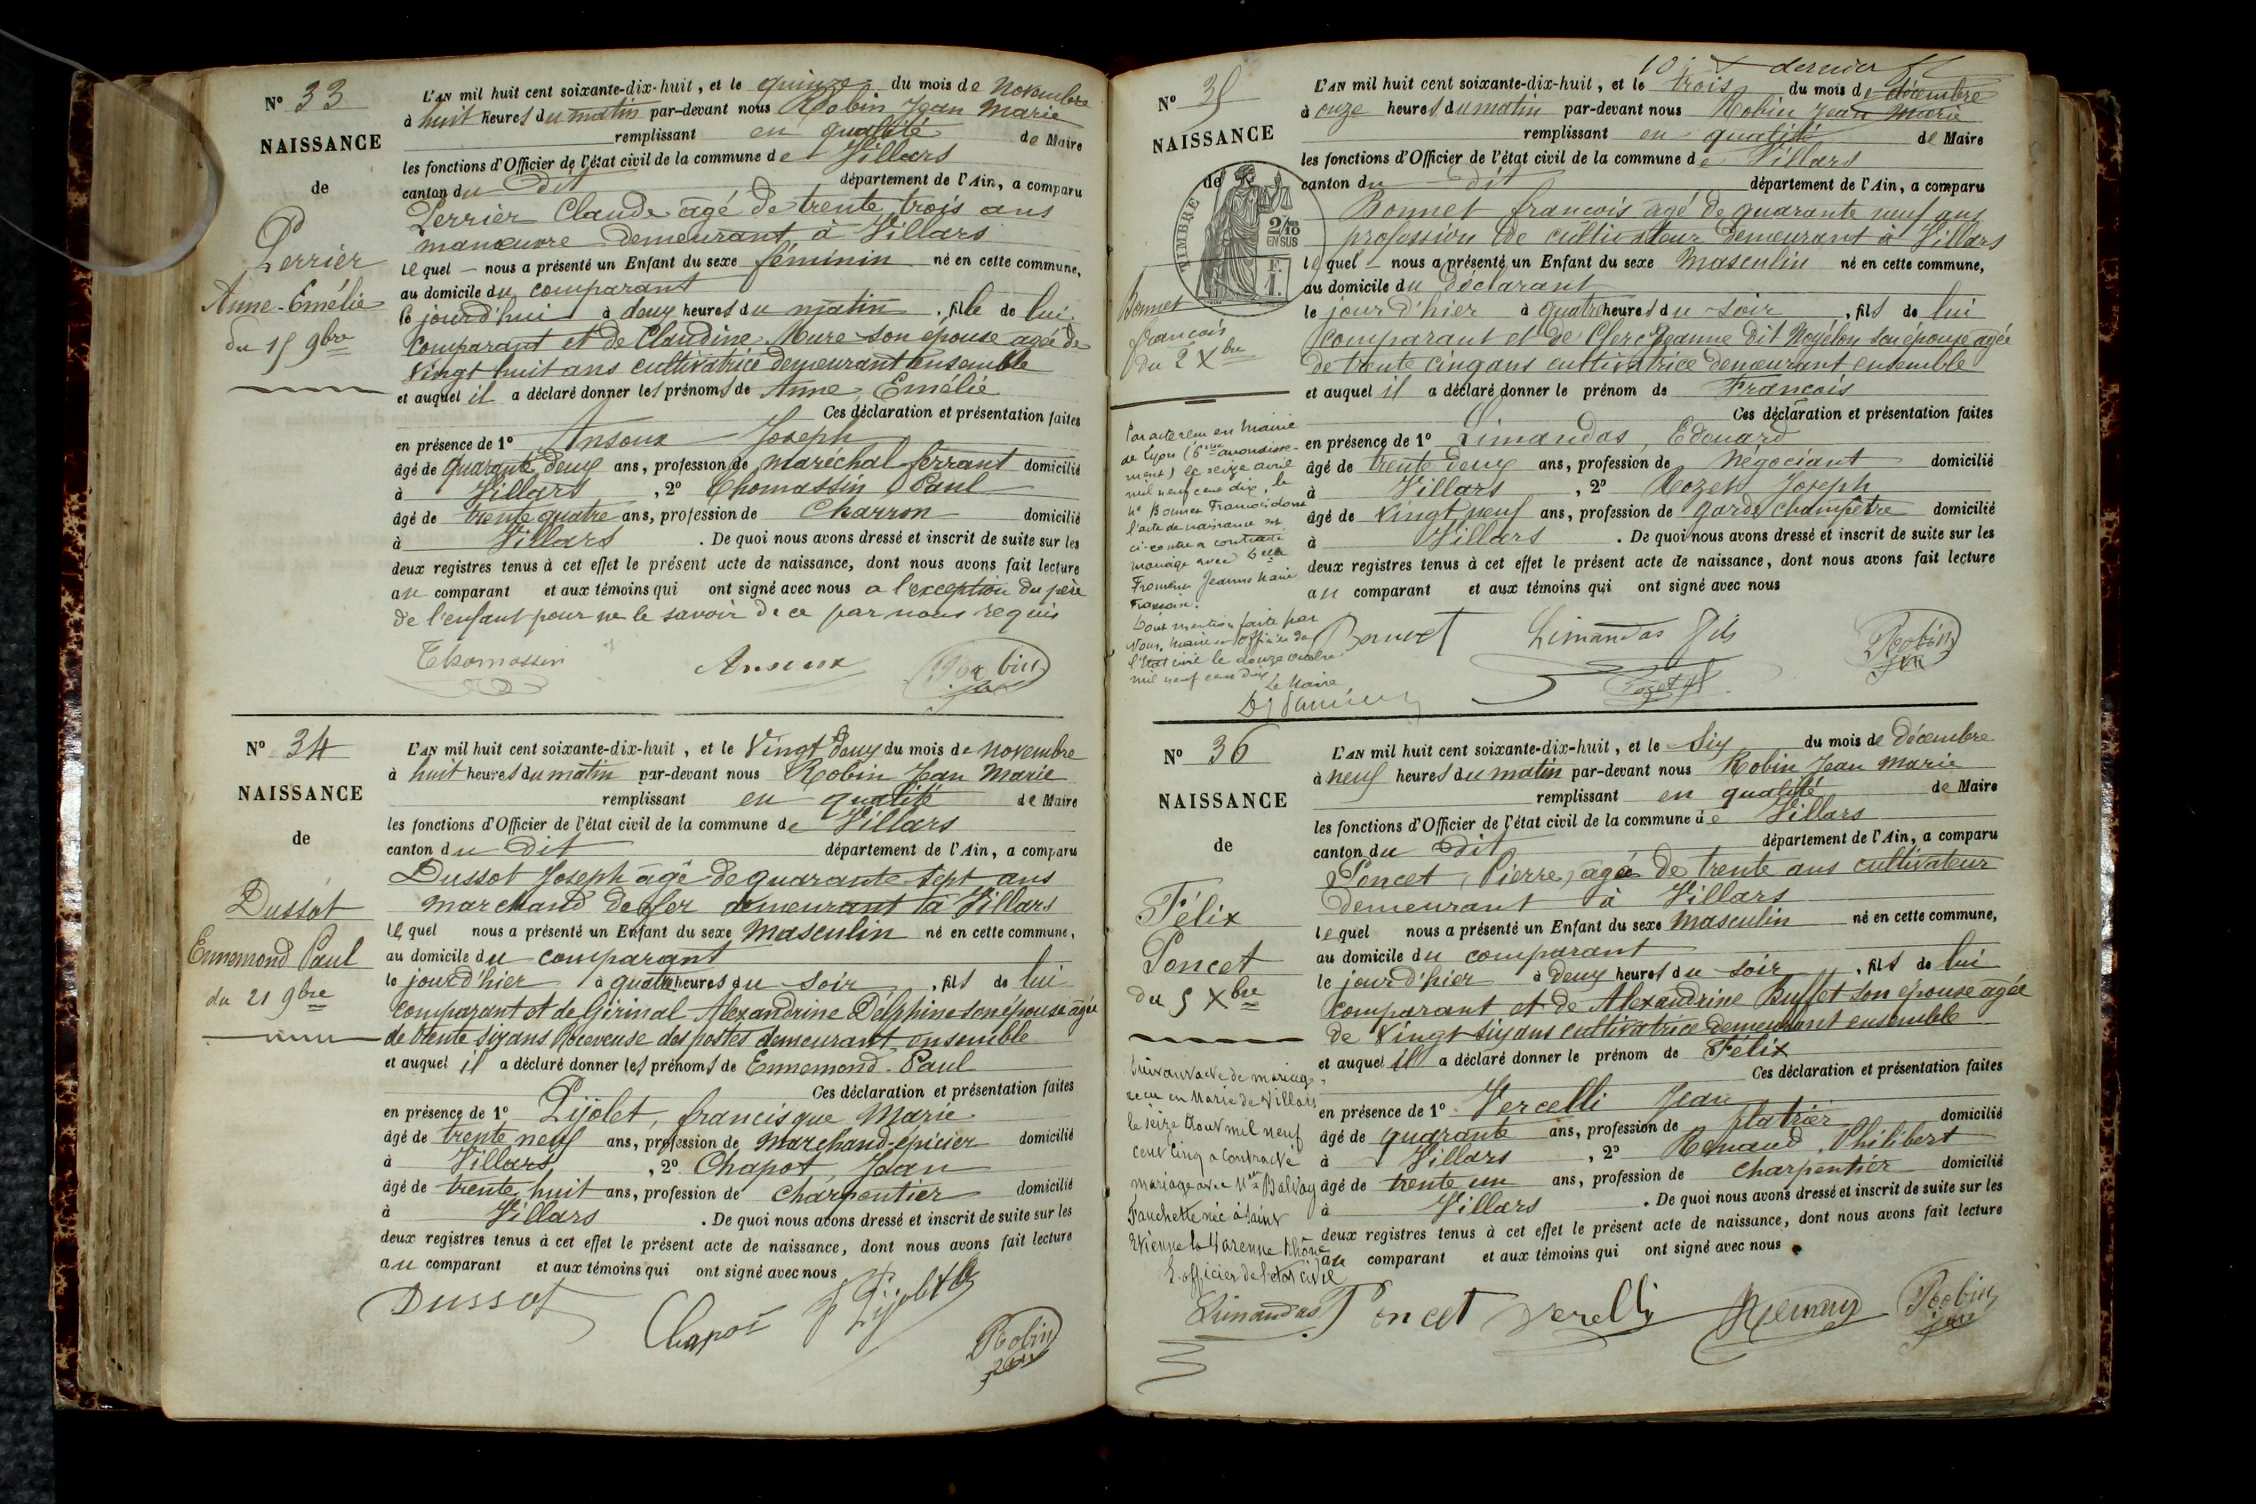 N° 33
NAISSANCE
de
Perrier
Anne-Emélie
du 15 9bre
L'AN mil huit cent soixante-dix-huit, et le quinze du mois de Novembre
à huit heures du matin par-devant nous Robin Jean Marie
remplissant en qualité de Maire
les fonctions d'Officier de l'état civil de la commune de Villars
canton du Dit département de l'Ain, a comparu
Perrier Claude âgé de trente trois ans
manœuvre demeurant à Villars
lequel nous a présenté un Enfant du sexe féminin né en cette commune,
au domicile du comparant
le jourd'hui à deux heures du matin, fille de lui
comparant et de Claudine Mure son épouse agée de
vingt huit ans cultivatrice demeurant ensemble
et auquel il a déclaré donner les prénoms de Anne, Emélie
Ces déclaration et présentation faites
en présence de 1° Ansoux Joseph
âgé de quarante deux ans, profession de maréchal ferrant domicilié
à Villars, 2° Thomassin Paul
âgé de trente quatre ans, profession de Charron domicilié
à Villars. De quoi nous avons dressé et inscrit de suite sur les
deux registres tenus à cet effet le présent acte de naissance, dont nous avons fait lecture
au comparant et aux témoins qui ont signé avec nous a l'exception du père
de l'enfant pour ne le savoir de ce par nous requis
Thomassin Ansoux Robin
N° 34
NAISSANCE
de
Dussot
Ennemond Paul
du 21 9bre
L'AN mil huit cent soixante-dix-huit, et le Vingt deux du mois de novembre
à huit heures du matin par-devant nous Robin Jean Marie
remplissant en qualité de Maire
les fonctions d'Officier de l'état civil de la commune de Villars
canton du Dit département de l'Ain, a comparu
Dussot Joseph âgé de quarante sept ans
marchand de fer demeurant à Villars
lequel nous a présenté un Enfant du sexe Masculin né en cette commune,
au domicile du comparant
le jourd'hier à quatre heures du soir, fils de lui
comparant et de Girinal Alexandrine Delphine son épouse agée
de trente six ans Receveuse des postes demeurant ensemble
et auquel il a déclaré donner les prénoms de Ennemond Paul
Ces déclaration et présentation faites
en présence de 1° Pijolet, francisque Marie
âgé de trente neuf ans, profession de marchand-épicier domicilié
à Villars, 2° Chapot Jean
âgé de trente huit ans, profession de charpentier domicilié
à Villars. De quoi nous avons dressé et inscrit de suite sur les
deux registres tenus à cet effet le présent acte de naissance, dont nous avons fait lecture
au comparant et aux témoins qui ont signé avec nous
Dussot Chapot Pijolet Robin
N° 35
NAISSANCE
de
TIMBRE
2/10
EN SUS
F.
1.
Bonnet
françois
du 2 Xbre
Par acte reçu en Mairie
de Lyon (6me arrondisse-
ment) le seize avril
mil neuf cent dix, le
sr Bonnet François dont
l'acte de naissance est
ci-contre a contracté
mariage avec Delle
Jeanne Marie
Tout mention faite par
Nous, Maire Officier de
l'Etat civil le douze
mil neuf cent dix
Le Maire
10 X dernier
L'AN mil huit cent soixante-dix-huit, et le trois du mois de décembre
à onze heures du matin par-devant nous Robin Jean Marie
remplissant en qualité de Maire
les fonctions d'Officier de l'état civil de la commune de Villars
canton du dit département de l'Ain, a comparu
Bonnet françois âgé de quarante neuf ans
profession de cultivateur demeurant à Villars
lequel nous a présenté un Enfant du sexe Masculin né en cette commune,
au domicile du déclarant
le jourd'hier à quatre heures du soir, fils de lui
comparant et de Clerc Jeanne Dit Noyélon son épouse agée
de trente cinq ans cultivatrice demeurant ensemble
et auquel il a déclaré donner le prénom de François
Ces déclaration et présentation faites
en présence de 1° Limandas, Edouard
âgé de trente deux ans, profession de Négociant domicilié
à Villars, 2° Rozet Joseph
âgé de Vingt neuf ans, profession de garde champêtre domicilié
à Villars. De quoi nous avons dressé et inscrit de suite sur les
deux registres tenus à cet effet le présent acte de naissance, dont nous avons fait lecture
au comparant et aux témoins qui ont signé avec nous
Bonnet Limandas fils Rozet Robin
N° 36
NAISSANCE
de
Félix
Poncet
du 5 Xbre
Suivant acte de mariage
reçu en Mairie de Villars
le seize Aout mil neuf
cent cinq a contracté
mariage avec Melle Balvay
Fanchette née à Saint
Etienne la Varenne Rhône
L'officier de l'état civil
Limandas
L'AN mil huit cent soixante-dix-huit, et le Six du mois de décembre
à neuf heures du matin par-devant nous Robin Jean Marie
remplissant en qualité de Maire
les fonctions d'Officier de l'état civil de la commune de Villars
canton du Dit département de l'Ain, a comparu
Poncet, Pierre, agée de trente ans cultivateur
demeurant à Villars
lequel nous a présenté un Enfant du sexe Masculin né en cette commune,
au domicile du comparant
le jourd'hier à deux heures du soir, fils de lui
comparant et de Alexandrine Buffet son épouse agée
de Vingt six ans cultivatrice demeurant ensemble
et auquel il a déclaré donner le prénom de Félix
Ces déclaration et présentation faites
en présence de 1° Vercelli Jean
âgé de quarante ans, profession de platrier domicilié
à Villars, 2° Renaud, Philibert
âgé de trente un ans, profession de charpentier domicilié
à Villars. De quoi nous avons dressé et inscrit de suite sur les
deux registres tenus à cet effet le présent acte de naissance, dont nous avons fait lecture
au comparant et aux témoins qui ont signé avec nous
Poncet Verelli Robin